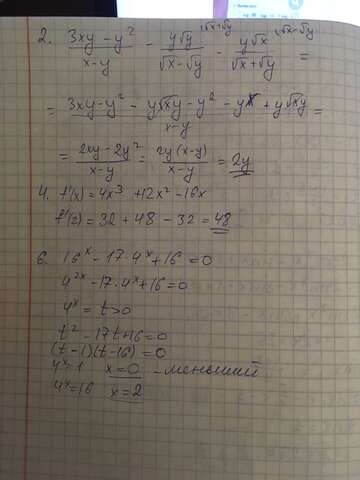 2. (3xy - y²)/(x-y) - (y√y)/(√x-√y) - (y√x)/(√x+√y) =
= (3xy - y² - y√xy - y² - yx + y√xy)/(x-y) =
= (2xy - 2y²)/(x-y) = (2y(x-y))/(x-y) = 2y
4. f'(x) = 4x³ + 12x² - 16x
f'(2) = 32 + 48 - 32 = 48
6. 16ˣ - 17·4ˣ + 16 = 0
4²ˣ - 17·4ˣ + 16 = 0
4ˣ = t > 0
t² - 17t + 16 = 0
(t-1)(t-16) = 0
4ˣ=1 x=0 - меньший
4ˣ=16 x=2